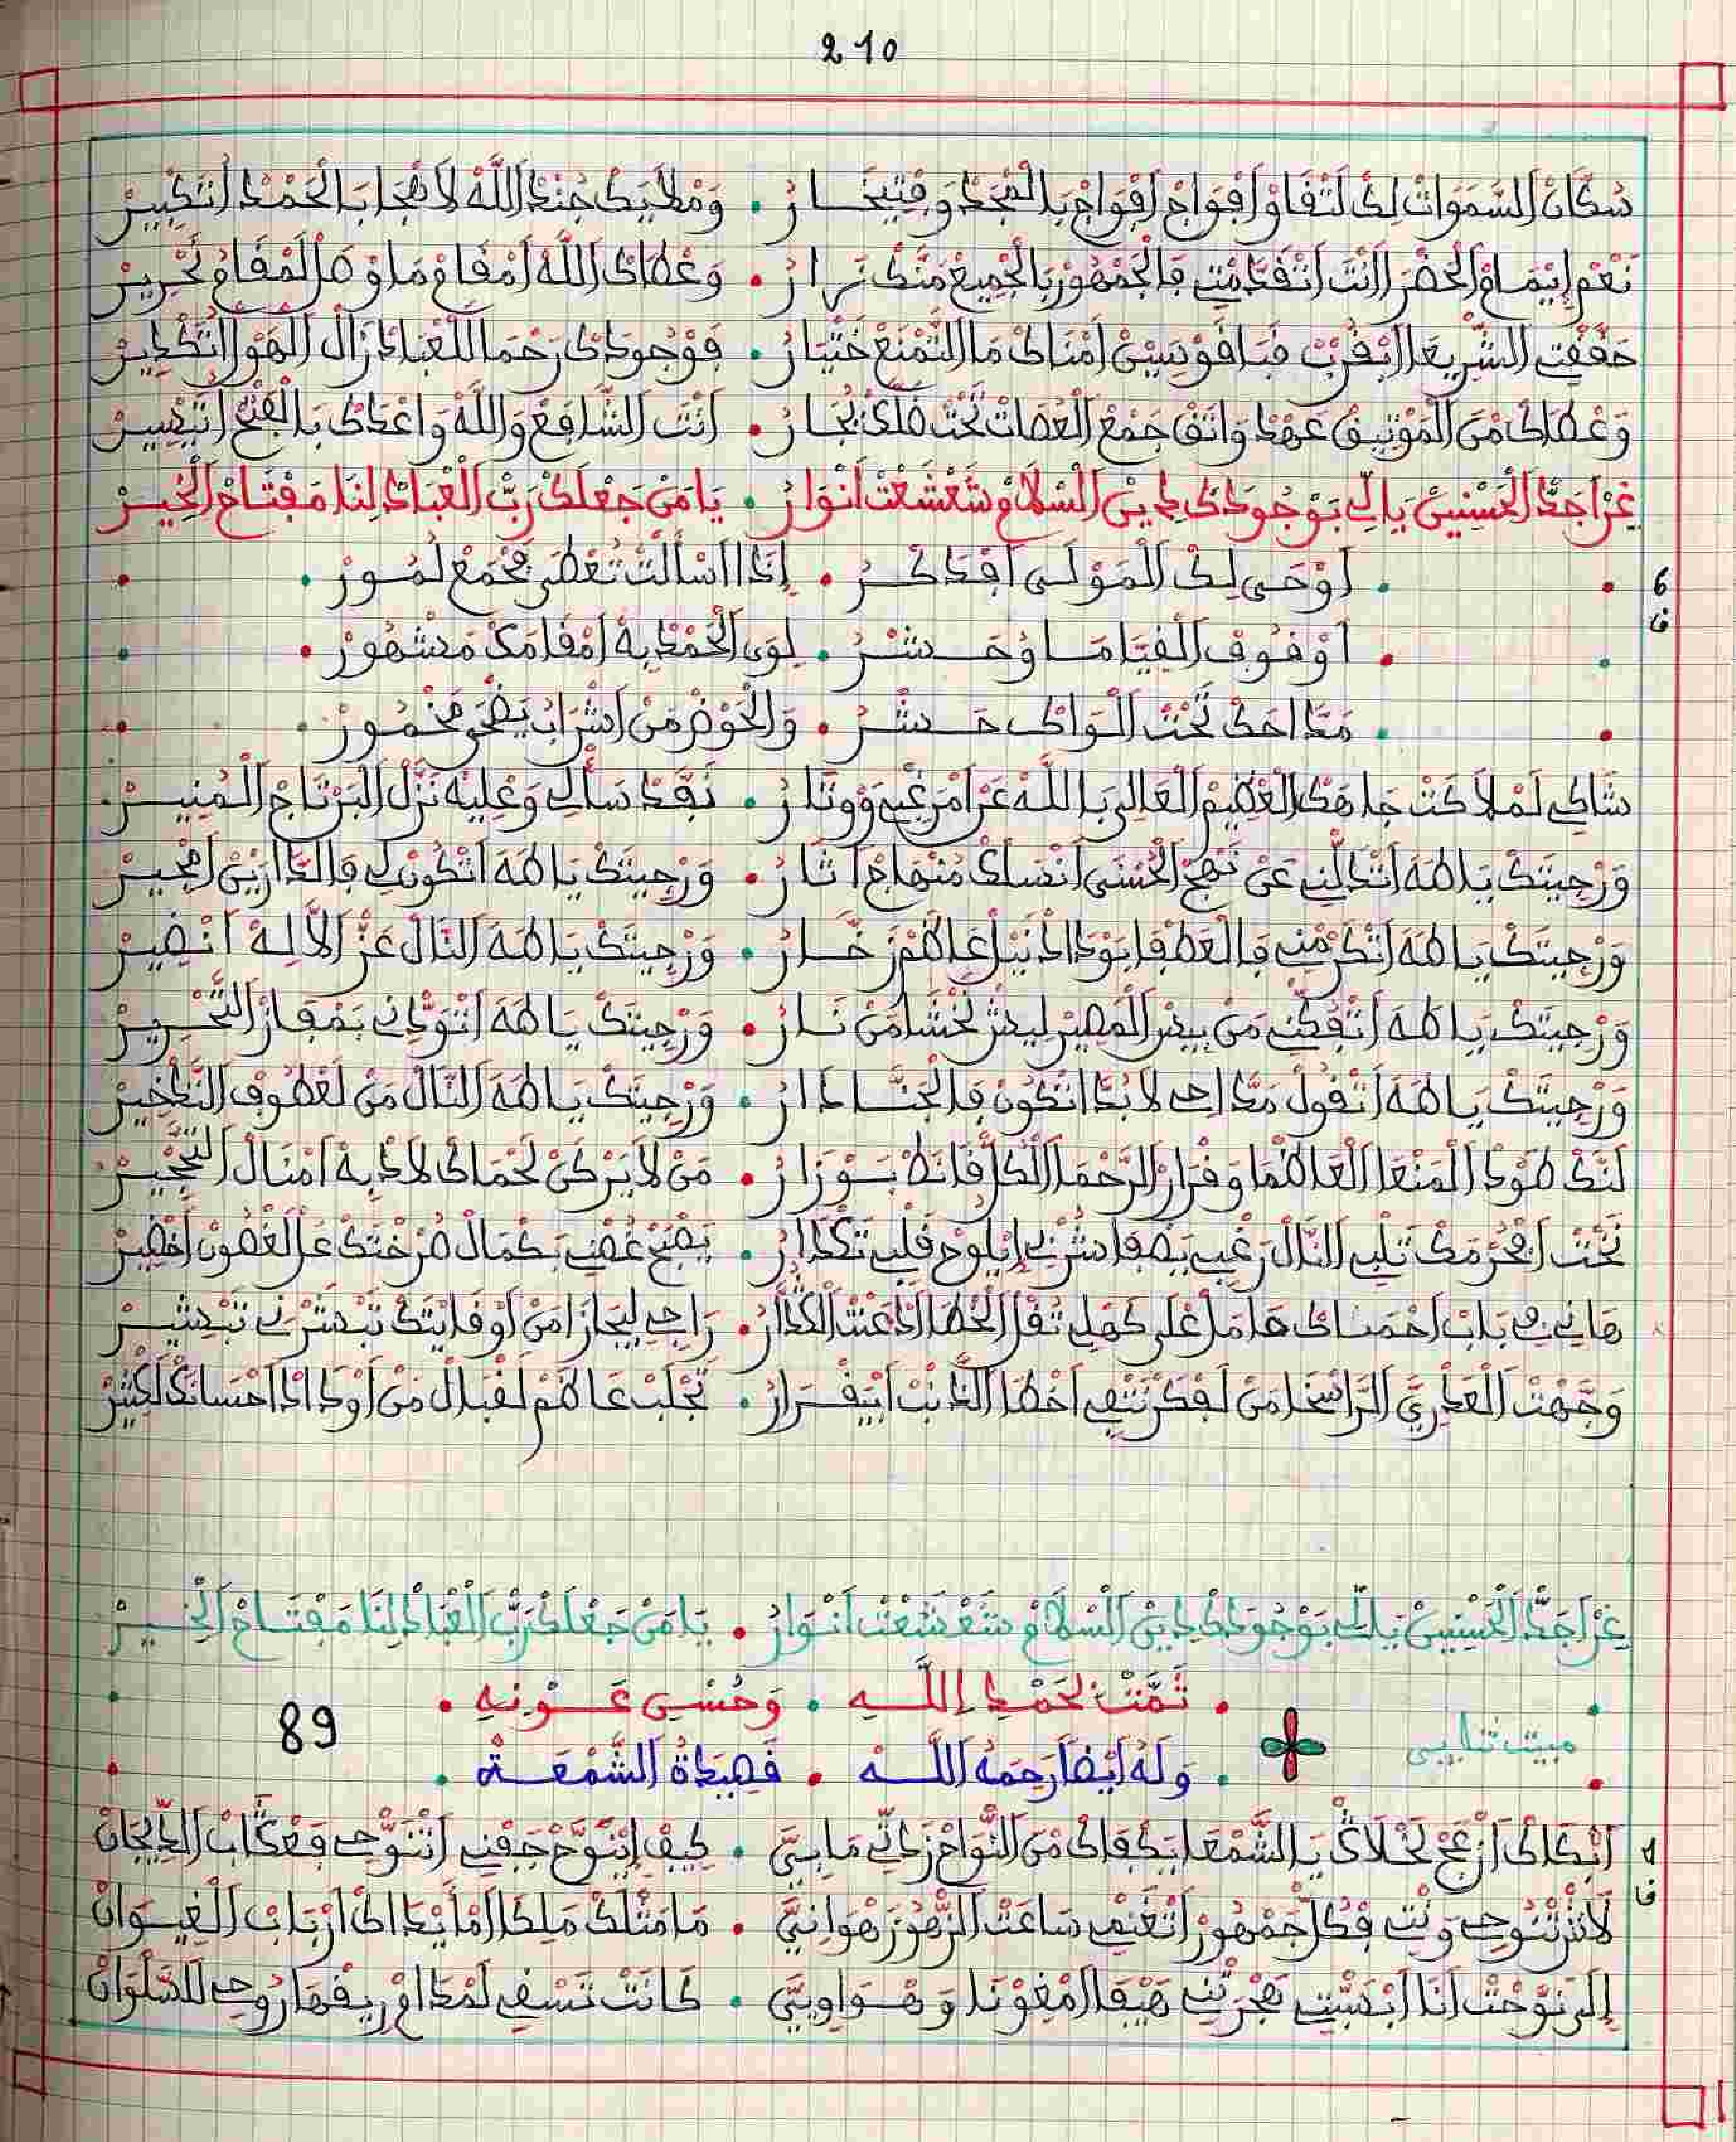 210
سُكَّانْ السَّمَوَاتْ لِكْ لَتْقَاوْ اَفْوَاجْ اَفْوَاجْ بَالْمَجْدْ وَفْتِيخَـارْ • وَمْلَايَكْ جُنْدْ اللَّهْ لَاهْجَا بَالْحَمْدْ اَتَكْبِيـرْ
نَعْمْ إِيْمَامْ الْحَضْرَا انْتَ اتْقَدَّمْتِ فَالْجَمْهُورْ بَالْجْمِيعْ مَنَّكْ نَهْرَارْ • وَعْطَاكْ اللَّهْ اَمْقَامْ مَاوْصَلْ لَمْقَامْ نَحْرِيرْ
حَقَّقْتِ الشّْرِيعَا ابْقُرْبْ قَابْ قَوْسِينْ اَمْنَاكْ مَا التَّمْنَعْ خَتْيَارْ • فَوْجُودَكْ رَحْمَا لَلْعْبَادْ زَالْ الْهَوْلْ اَتَكْدِيرْ
وَعْطَاكْ مَنْ الْمَوْتِيقْ عَهْدْ وَاتَقْ جَمْعْ الْعُصَاتْ تَحْتْ فَلْكَكْ نْجَـارْ • اَنْتَ الشَّافَعْ وَاللَّهْ وَاعْدَكْ بَالْفَتْحْ اَتَيْسِيرْ
عَزْ اَجَدّْ الْحَسْنِينْ يَالِّي بَوْجُودَكْ دِينْ السْلَامْ شَعْشَعْتْ اَنْوَارْ • يَا مَنْ جَعْلَكْ رَبّْ الْعْبَادْ لِنَا مَفْتَـاحْ الْخِيـرْ
6 • اَوْحَى لِكْ الْمَوْلَى اَفْدَكْـرْ • إِدَا اسْأَلْتْ تُعْطَى مَجْمَعْ لُمُـورْ •
فا • اَوْقُوفْ الْقِيَامَـا وُحَـشْـرْ • لِوَى الْحَمْدْ بِهْ اَمْقَامَكْ مَشْهُورْ •
• مَدَّاحَكْ تَحْتْ الْوَاكْ حَـشْـرْ • وَالْحَوْضْ مَنْ اَشْرَابْ يَضْحَى مَخْمُـورْ •
شَاكِي لَمْلَاكْتْ جَاهَكْ الْعْظِيمْ الْعَالِي بَاللَّهْ عَزْ اَمْرَغْبِي وَوْتَـارْ • نَقْدْ سَأْلِي وَعْلِيهْ نَزَّلْ الْبَرْتَاجْ الْمُنِيـرْ
وَرْجِيتَكْ يَا طَهَ اَتْدَلّْنِي عَنْ نَهْجْ الْحُسْنَى اَنْسَلَكْ مَنْهَاجْ اَثَـارْ • وَرْجِيتَكْ يَا طَهَ اَتْكُونْ لِي فَالدَّارِينْ اَمْجِيـرْ
وَرْجِيتَكْ يَا طَهَ اَتْكَرْمْنِي فَالْعَطْفَا بَوْدَادْ نَيْلْ غَا طَمْ زَخَّـارْ • وَرْجِيتَكْ يَا طَهَ النَّالْ عَزّْ الْإِلَهْ اَنْصِيـرْ
وَرْجِيتَكْ يَا طَهَ اَتْفَكّْنِي مَنْ بِيسْ الْمَصِيرْ لِيسْ نَخْشَا مَنْ نَـارْ • وَرْجِيتَكْ يَا طَهَ اَتْوَدّْنِي بَمْفَازْ التَّحْـرِيرْ
وَرْجِيتَكْ يَا طَهَ اَتْقُولْ مَدَّاحِي لَابُدَّا اتْكُونْ فَالْجَنَّـا دَارْ • وَرْجِيتَكْ يَا طَهَ النَّالْ مَنْ لَعْطُوفْ التَّدْخِيرْ
لَنَّكْ طَوْدْ الْمَنْعَا الْعَاظْمَا وَقْرَارْ الرَّحْمَا الْكُلّْ قَانَطْ بَـوْزَارْ • مَنْ لَا يَرْكَنْ لَحْمَاكْ لَادْ بِهْ اَمْنَالْ التَّبْخِيـرْ
تَحْتْ اَفْحُرْمَكْ تَلْبِي النَّالْ رَغْبِي يَصْفَا شُرْبِي إِيْلُوحْ قَلْبِي تَكْدَارْ • يَصْبَحْ غُصْنِي بَكْمَالْ صَرْخْتَكْ عَالْغُصُونْ اَخْضِيرْ
هَانِي فِي بَابْ اَحْمَـاكْ هَامَلْ عْلَى كَهْلِي تُقْلْ الْخْطَا ادْعَتْ الْكْدَارْ • رَاجِي لِيجَازَا مَنْ اَوْفَايْتَكْ تَبْشَرْنِي تَبْشِيـرْ
وَجَّهْتْ الْعَدْرِيَ الرَّاسْخَا مَنْ لَفْكَرْ تَنْفِي اَخْطَا الدَّنْبْ اِيقْـرَارْ • تَجْلَبْ عَاظَمْ لَقْبَالْ مَنْ اَوْدَادْ اَحْسَانَكْ لَكْثِيرْ
عَزْ اَجَدّْ الْحَسْنِينْ يَالِّي بَوْجُودَكْ دِينْ السْلَامْ شَعْشَعْتْ اَنْـوَارْ • يَا مَنْ جَعْلَكْ رَبّْ الْعْبَادْ لِنَا مَفْتَـاحْ الْخِيـرْ
• تَمَّتْ بْحَمْدِ اللَّـهِ • وَحُسْنِ عَـوْنِهِ •
مبيت تنايبي 89
• وَلَهُ أَيْضاً رَحِمَهُ اللَّـه • قَصِيدَةُ الشَّمْعَـة •
1 اَبْكَاكْ اَزْعَجْ لَخْلَاكْ يَا الشَّمْعَا يَكْفَاكْ مَنْ النّْوَاحْ زَدْتِي مَا بِيَّ • كِيفْ إِيْنَوَّحْ جَفْنِي اَتْنَوّْحِي فَعْكَابْ الدِّيجَانْ
فا لَاشْ تْنُوحِي وَنْتِ فْكُلّْ جَمْهُورْ اَتْغَنْمِي سَاعَتْ الزّْهُو زَهْوَانِيَّ • مَا مَثْلَكْ مَلِكَا اَمْأَيْدَا اَدْ اَرْبَابْ الْغِيـوَانْ
إِلَى نَوَّحْتْ اَنَا اَبْسَبّْتِي هَجْرَتْنِي هَيْفَا اَمْغَوْنَا وَهْـوَاوِيَّ • كَانَتْ تَسْفِي لَمْدَامْ رِيقْهَا رُوحِي لَلسَّلْوَانْ